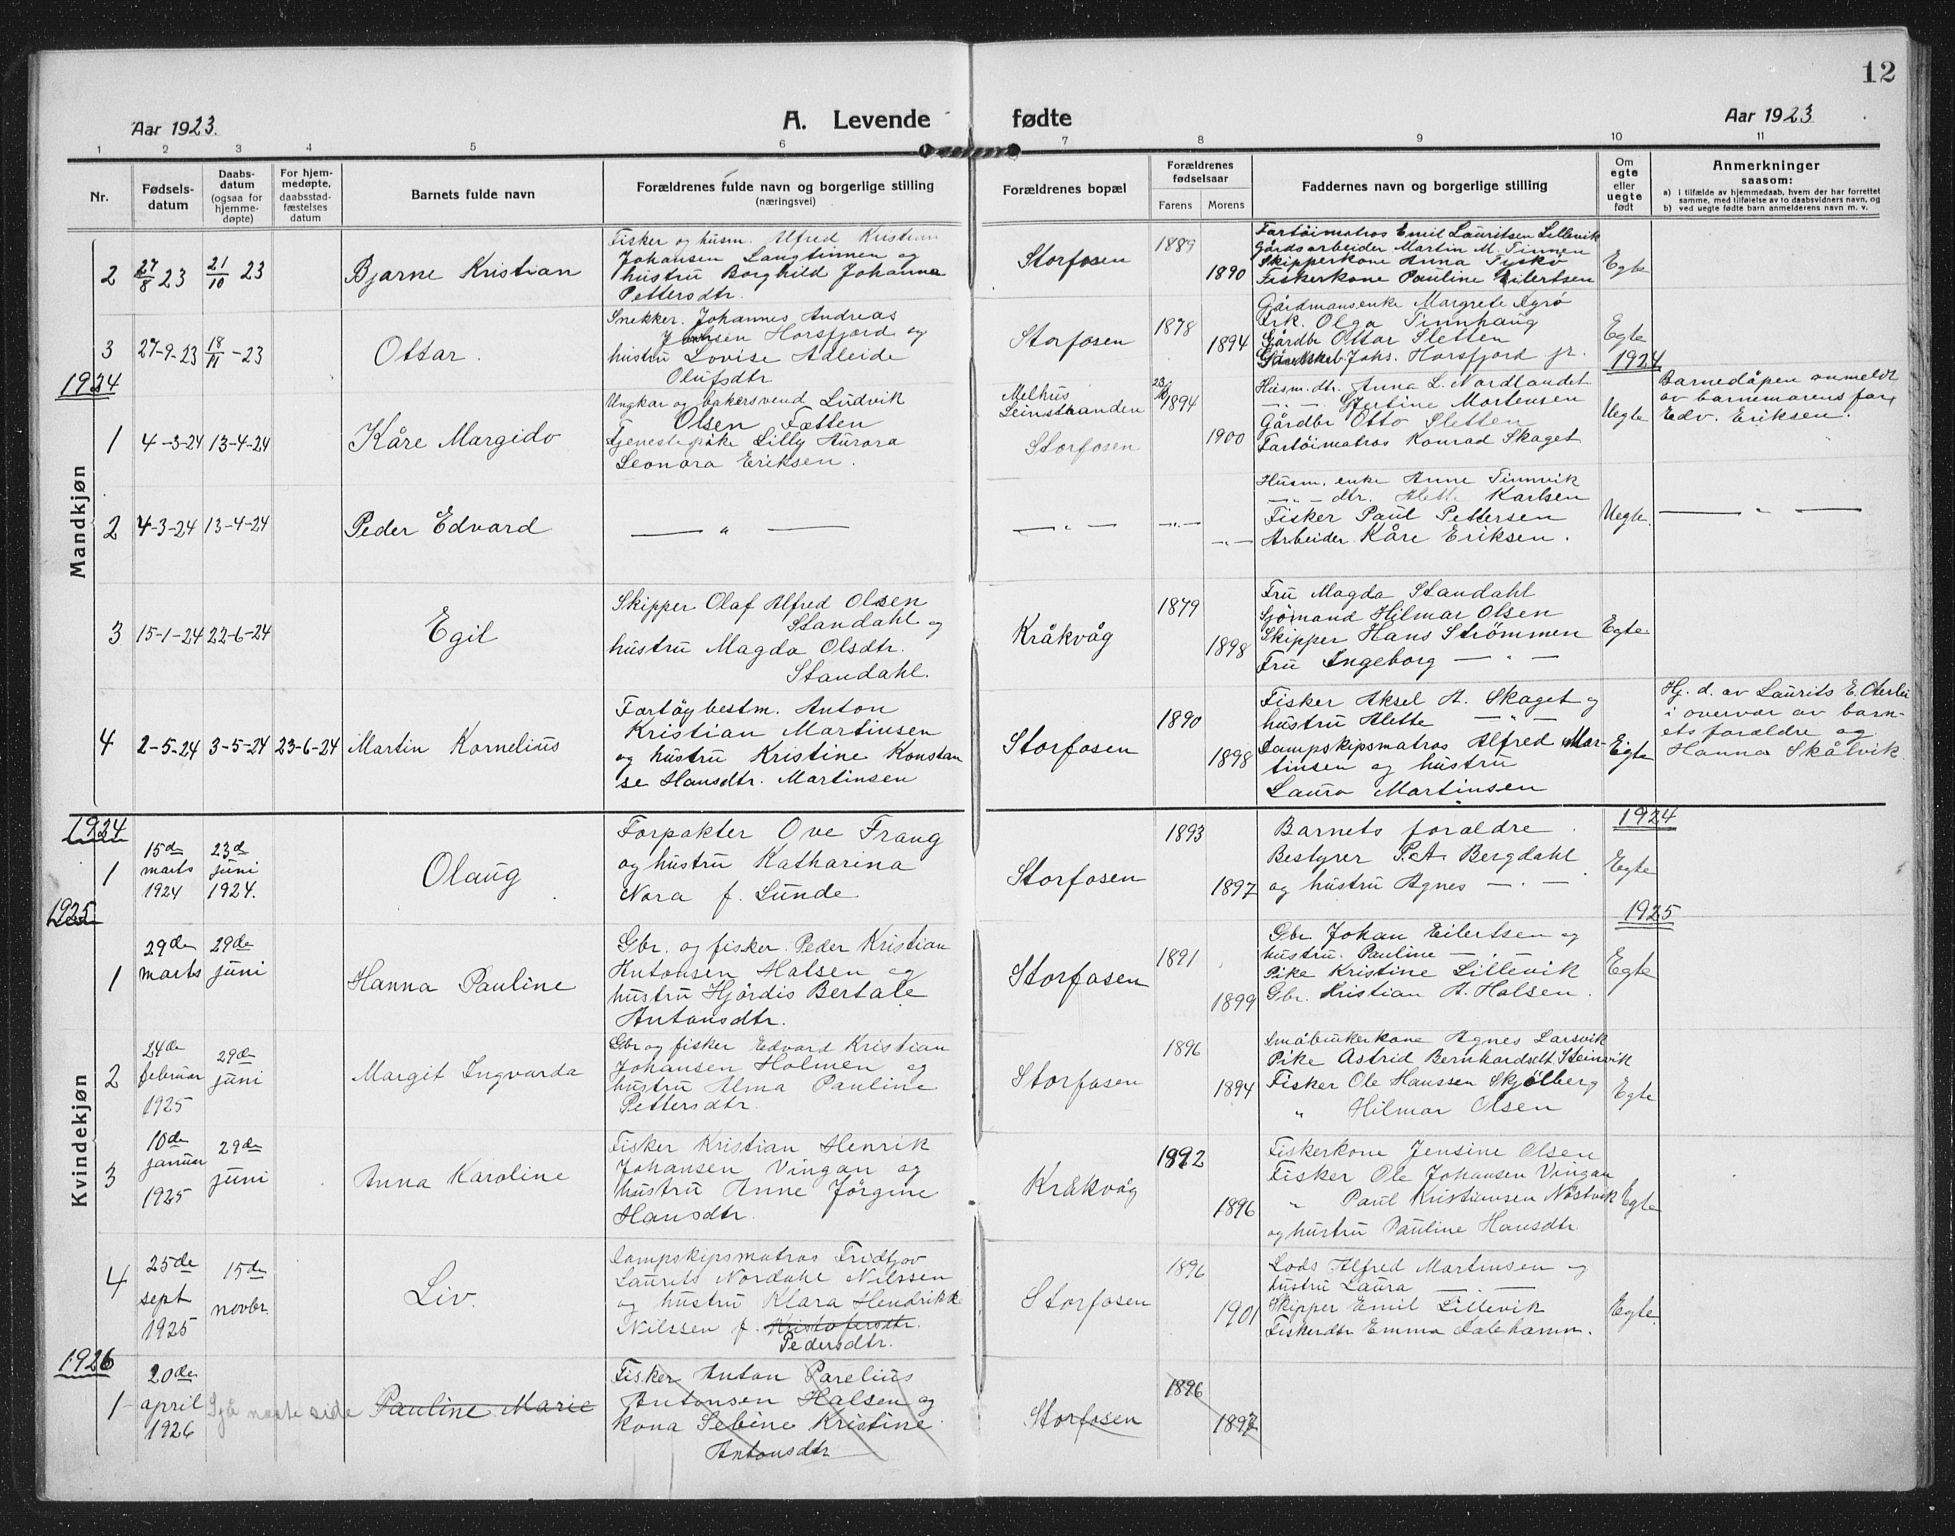 12
Aar 1923.
A. Levende fødte
Aar 1923
1 2 3 4 5 6 7 8 9 10 11
Nr.
Fødsels-
datum
Daabs-
datum
(ogsaa for
hjemme-
døpte)
For hjem-
medøpte,
daabsstad-
fæstelses
datum
Barnets fulde navn
Forældrenes fulde navn og borgerlige stilling
(næringsvei)
Forældrenes bopæl
Forældrenes
fødselsaar
Farens Morens
Faddernes navn og borgerlige stilling
Om
egte
eller
uegte
født
Anmerkninger
saasom:
a) i tilfælde av hjemmedaab, hvem der har forrettet
samme, med tilføielse av to daabsvidners navn, og
b) ved uegte fødte barn anmelderens navn m. v.
Mandkjøn
2
27/8 23
21/10 23
Bjarne Kristian
Fisker og husm. Alfred Kristian
Johansen Langtinnen og
hustru Borghild Johanna
Pettersdtr.
Storfosen
1889
1890
Fartöimatros Emil Lauritsen Lillevik
Gårdsarbeider Martin M. Tinnen
Skipperkone Anna Tyskö
Fiskerkone Pauline Eilertsen
Egte
3
27-9-23
18/11-23
Ottar.
Snekker. Johannes Andreas
Jensen Horsfjord og
hustru Lovise Adleide
Olufsdtr
Storfosen
1878
1894
Gårdmansenke Margrete Agrö
Frk. Olga Tinnhaug
Gårdbr Ottar Sletten
Johs. Horsfjord jr.
Egte
1924
1924
1
4-3-24
13-4-24
Kåre Margido
Ungkar og bakersvend Ludvik
Olsen Fætten
Tjenestepike Lilly Aurora
Leonora Eriksen.
Melhus
Leinstranden
Storfosen
1894
1900
Husm. dtr. Anna L. Nordlandet
— " — Gjertine Mortensen
Gårdbr Otto Sletten
Fartöimatros Konrad Skaget
Uegte
Barnedåpen anmeldt
av barnemorens far,
Edv. Eriksen.
2
4-3-24
13-4-24
Peder Edvard
— " —
— " —
— " —
— " —
Husm. enke Anne Tinnvik
— " — dtr. Alette Karlsen
Fisker Paul Pettersen
Arbeider Kåre Eriksen.
Uegte.
— " —
3
15-1-24
22-6-24
Egil
Skipper Olaf Alfred Olsen
Standahl og
hustru Magda Olsdtr.
Standahl.
Kråkvåg
1879
1898
Fru Magda Standahl
Sjömand Hilmar Olsen
Skipper Hans Strömmen
Fru Ingeborg — " —
Egte
4
2-5-24
3-5-24
23-6-24
Martin Kornelius
Fartöybestm. Anton
Kristian Martinsen
og hustru Kristine Konstan
se Hansdtr. Martinsen
Storfosen
1890
1898
Fisker Aksel A. Skaget og
hustru Alette — " —
Dampskipsmatros Alfred Mar-
tinsen og hustru
Laura Martinsen
Egte
Hj. d. av Laurits E. Oterlei
i overvær av barn-
ets forældre og
Hanna Skålvik
Kvindekjøn
1924
1
15de
marts
1924
23de
juni
1924.
Olaug
Forpakter Ove Fraug
og hustru Katharina
Nora f. Lunde
Storfosen
1893
1897
Barnets forældre.
Bestyrer P.A. Bergdahl
og hustru Agnes — " —
1924
Egte
1925
1
29de
marts
29de
juni
Hanna Pauline
Gbr. og fisker. Peder Kristian
Antonsen Halsen og
hustru Hjördis Bertale
Antonsdtr.
Storfosen
1891
1899
Gbr Johan Eilertsen og
hustru. Pauline — " —
Pike Kristine Lillevik
Gbr. Kristian A. Halsen.
1925
Egte
2
24de
februar
1925
29de
juni
Margit Ingvarda
Gbr og fisker Edvard Kristian
Johansen Holmen og
hustru Alma Pauline
Pettersdtr.
Storfosen
1896
1894
Småbrukerkone Agnes Larsvik
Pike Astrid Bernhardsdt Steinvik
Fisker Ole Hanssen Skjölberg
" Hilmar Olsen
Egte
3
10de
januar
1925
29de
juni
Anna Karoline
Fisker Kristian Henrik
Johansen Vingan og
hustru Anne Jörgine
Hansdtr.
Kråkvåg
1892
1896
Fiskerkone Jensine Olsen
Fisker Ole Johansen Vingan
" Paul Kristiansen Nöstvik
og hustru Pauline Hansdtr
Egte
4
25de
sept
1925
15de
novbr
Liv.
Dampskipsmatros Fridtjov
Laurits Nordahl Nilssen
og hustru Klara Hendrikke
Nilssen f. Kristofersdtr.
Pedersdtr.
Storfosen
1896
1901
Lods Alfred Martinsen og
hustru Laura — " —
Skipper Emil Lillevik
Fiskerdtr Emma Dalehamn.
Egte.
1926
1
20de
april
1926
Sjå næste side
Pauline Marie
Fisker Anton Parelius
Antonsen Halsen og
kona Sebine Kristine
Antonsdtr
Storfosen
1896
1897